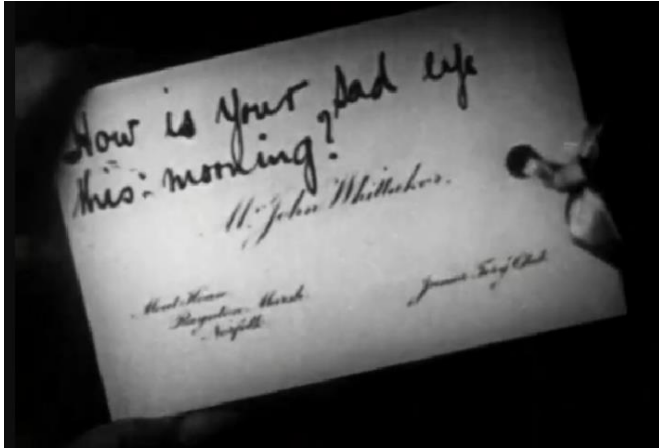 How is your sad eye
this morning?
Mr. John Whittaker.
Moat House
Peynton Marsh
Norfolk
Junior Tory Club